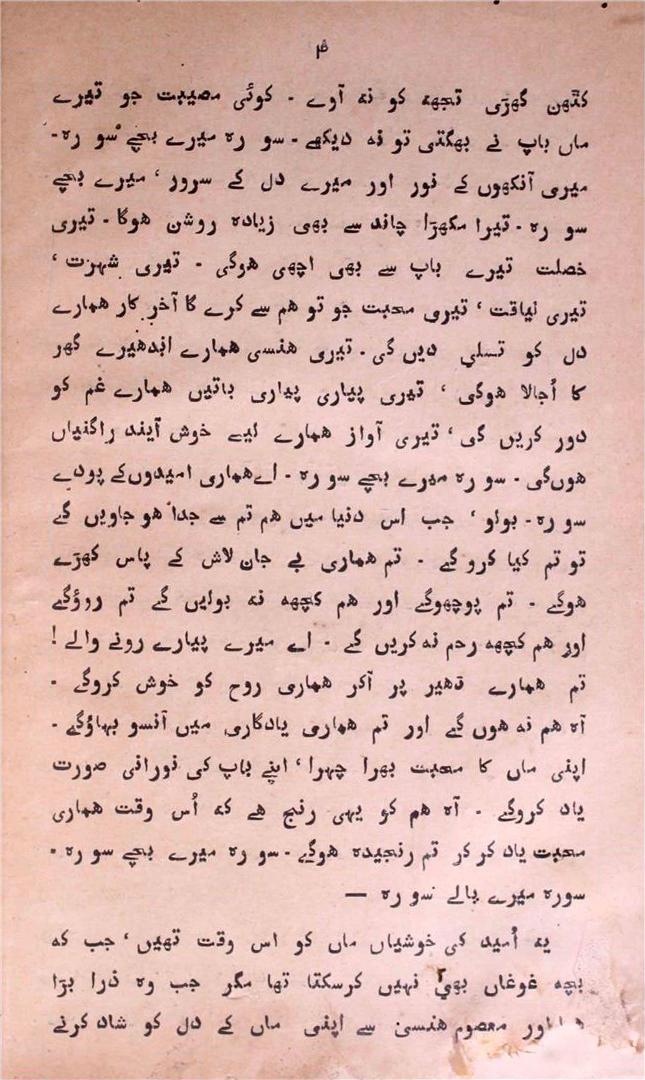 ۴
کٹھن گھڑی تجھہ کو نہ آوے - کوئی مصیبت جو تیرے
ماں باپ نے بھگتی تو نہ دیکھے - سو رہ میرے بچے سو رہ -
میری آنکھوں کے نور اور میرے دل کے سرور ' میرے بچے
سو رہ - تیرا مکھڑا چاند سے بھی زیادہ روشن ہوگا - تیری
خصلت تیرے باپ سے بھی اچھی ہوگی - تیری شہرت '
تیری لیاقت ' تیری محبت جو تو ہم سے کرے گا آخر کار ہمارے
دل کو تسلی دیں گی - تیری ہنسی ہمارے اندھیرے گھر
کا اُجالا ہوگی ' تیری پیاری پیاری باتیں ہمارے غم کو
دور کریں گی ' تیری آواز ہمارے لیے خوش آیند راگنیاں
ہوں گی - سو رہ میرے بچے سو رہ - اے ہماری امیدوں کے پودے
سو رہ - بولو ' جب اس دنیا میں ہم تم سے جدا ہو جاویں گے
تو تم کیا کرو گے - تم ہماری بے جان لاش کے پاس کھڑے
ہوگے - تم پوچھوگے اور ہم کچھہ نہ بولیں گے تم روؤگے
اور ہم کچھہ رحم نہ کریں گے - اے میرے پیارے رونے والے !
تم ہمارے ڈھیر پر آکر ہماری روح کو خوش کروگے -
آہ ہم نہ ہوں گے اور تم ہماری یادگاری میں آنسو بہاؤگے -
اپنی ماں کا محبت بھرا چہرا ' اپنے باپ کی نورانی صورت
یاد کروگے - آہ ہم کو یہی رنج ہے کہ اُس وقت ہماری
محبت یاد کر کر تم رنجیدہ ہوگے - سو رہ میرے بچے سو رہ -
سو رہ میرے بالے سو رہ —
یہ اُمید کی خوشیاں ماں کو اس وقت تھیں ' جب کہ
بچہ غوغاں بھی نہیں کرسکتا تھا مگر جب وہ ذرا بڑا
ہوا اور معصوم ہنسی سے اپنی ماں کے دل کو شاد کرنے